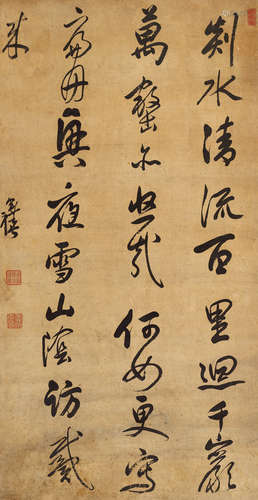 剡水清流百里迴千巖
萬壑亦悠哉何如更寫
扁舟興夜雪山陰訪戴
來